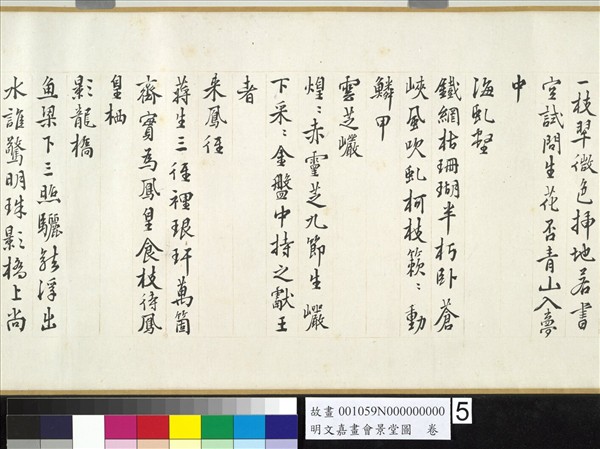 一枝翠微色挿地若書
空試問生花否青山入夢
中
海虬壑
鐵網枯珊瑚半朽卧蒼
峽風吹虬柯枝簌〻動
鱗甲
雲芝巖
煌〻赤靈芝九節生巖
下采〻金盤中持之獻王
者
来鳳徑
蒋生三徑裡琅玕萬箇
齊實為鳳皇食枝待鳳
皇栖
影龍橋
魚梁下三驪龍浮出
水誰驚明珠影橋上尚
故畫 001059N000000000
明文嘉畫會景堂圖 卷
5